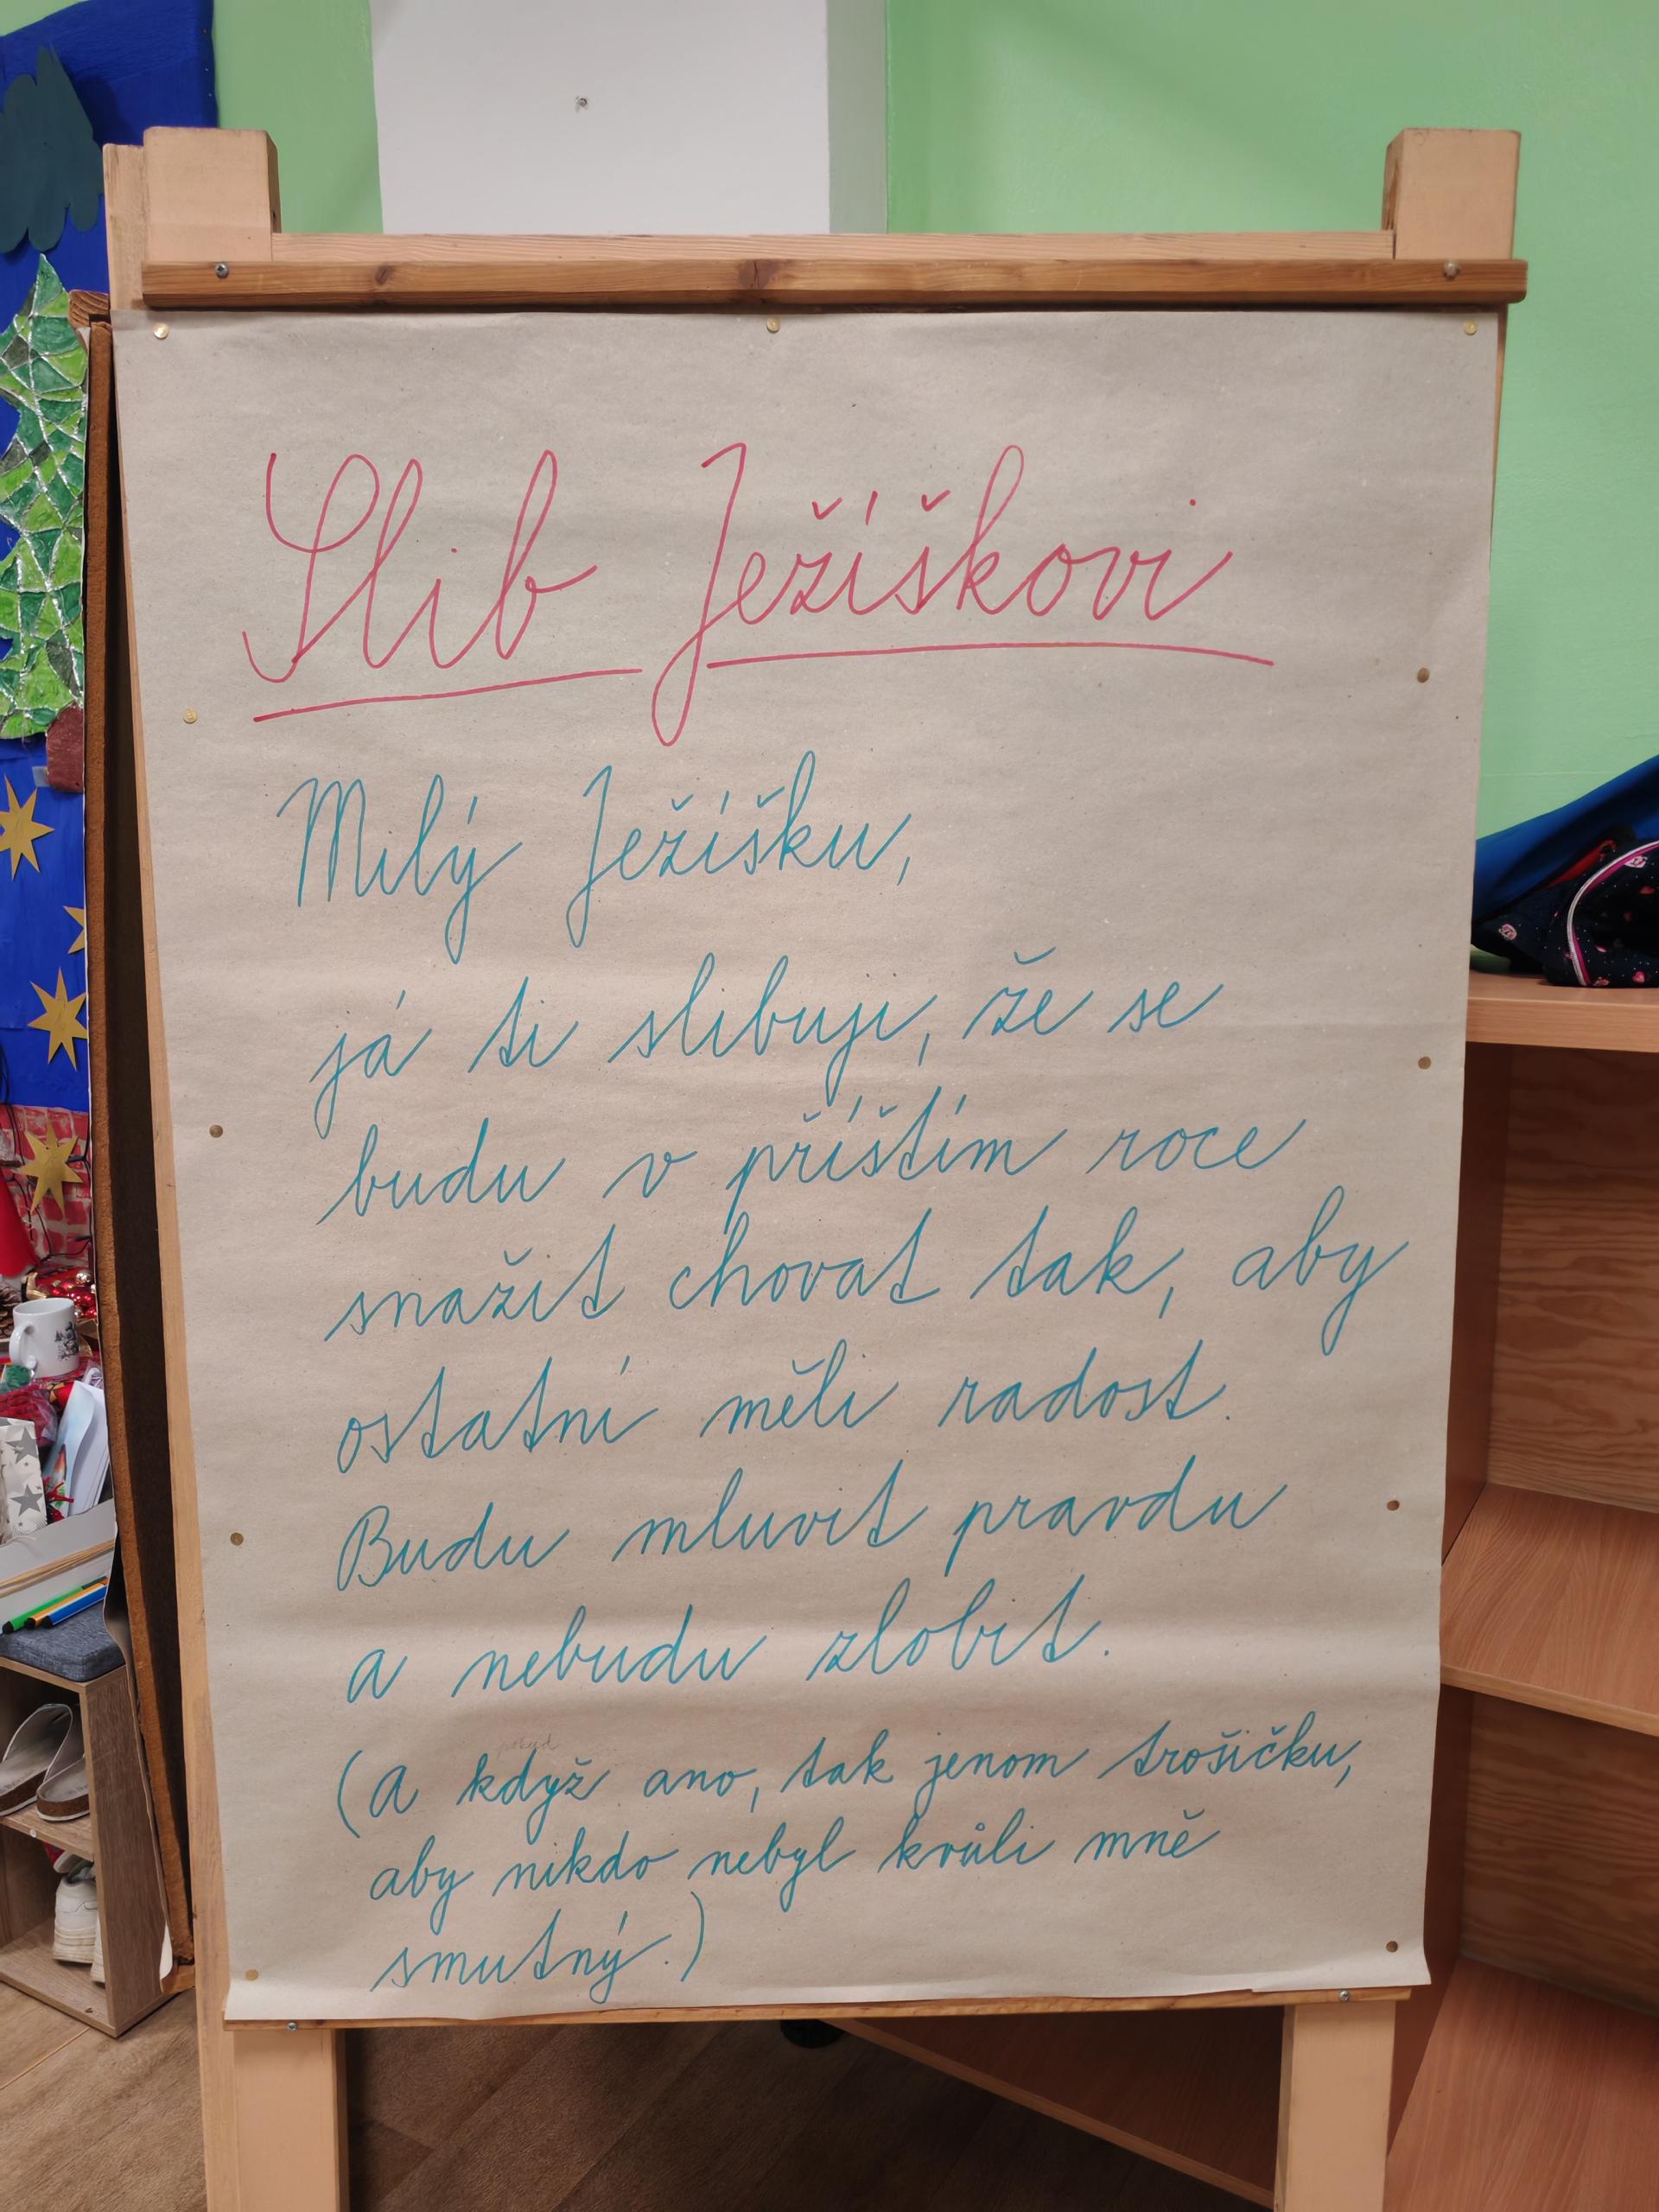 Slib Ježíškovi
Milý Ježíšku,
já ti slibuji, že se
budu v příštím roce
snažit chovat tak, aby
ostatní měli radost.
Budu mluvit pravdu
a nebudu zlobit.
(A když ano, tak jenom trošičku,
aby nikdo nebyl kvůli mně
smutný.)